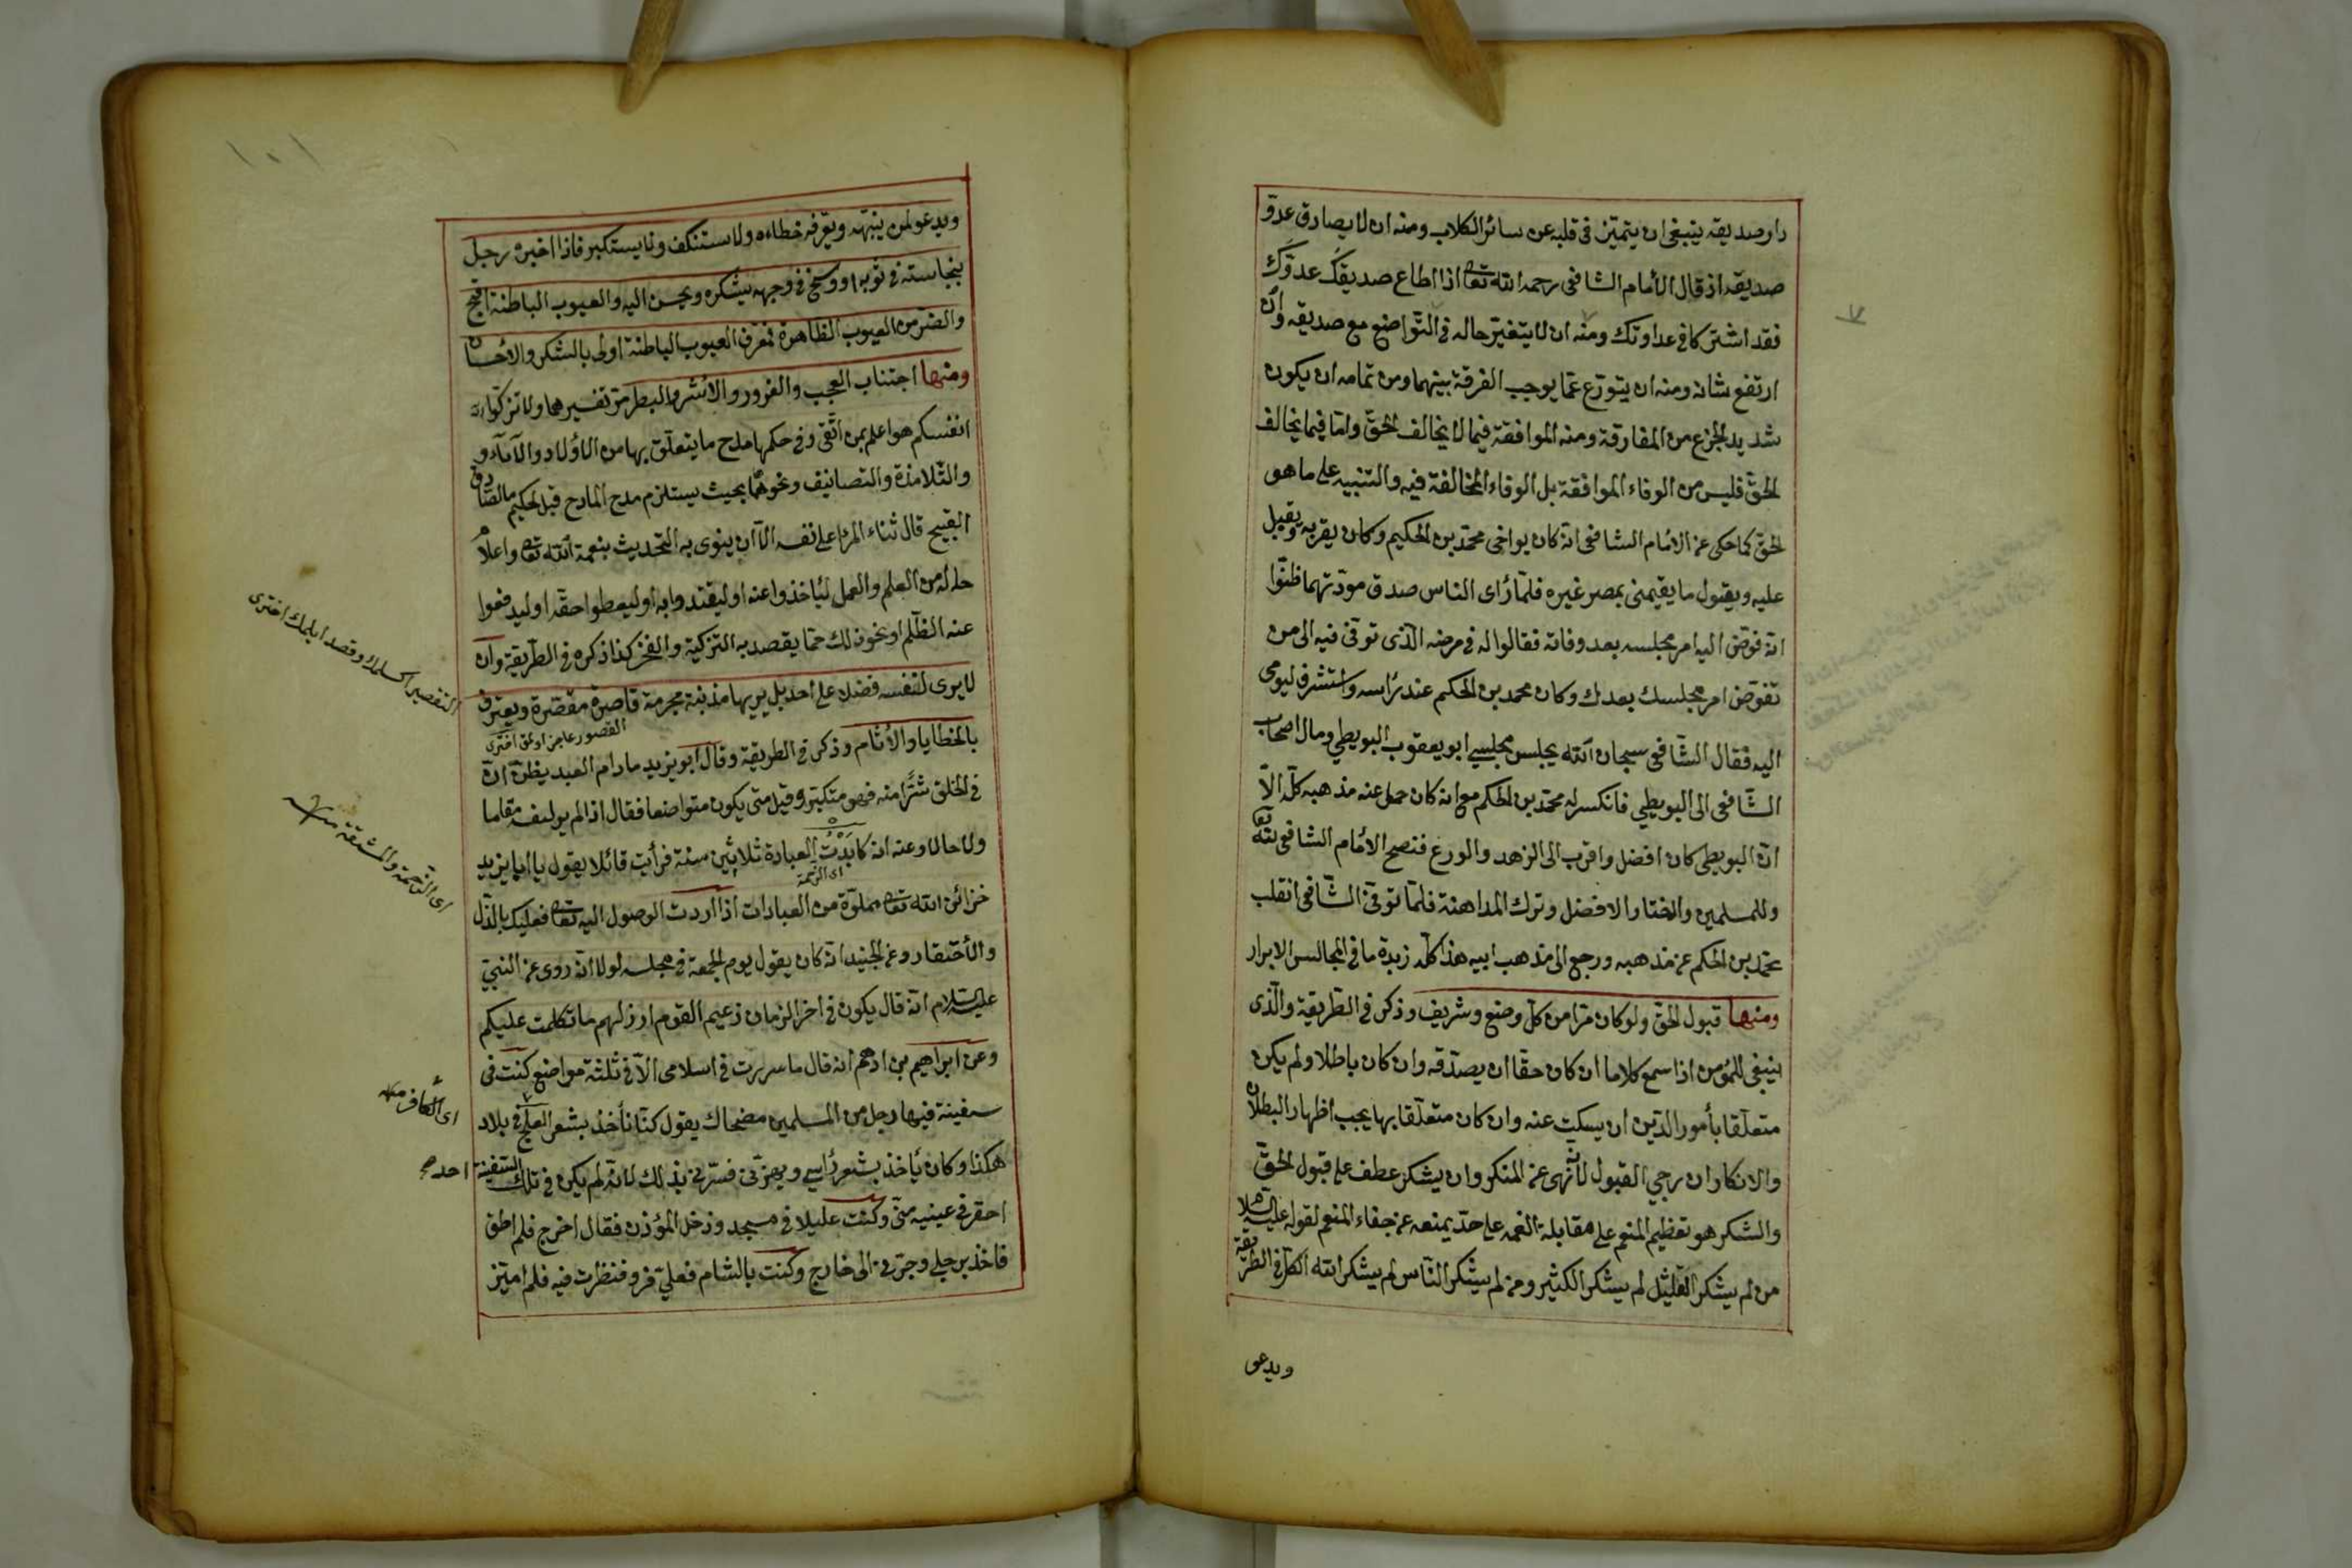 دار صديقه ينبغى ان يتميّز فى قلبه عن سائر الكلاب ومنه ان لا يصادق عدوّ
صديقه اذ قال الأمام الشافعى رحمه الله تعا اذا اطاع صديقك عدوّك
فقد اشتركا فى عداوتك ومنه ان لا يتغيّر حاله فى التّواضع مع صديقه وان
ارتفع شانه ومنه ان يتورّع عمّا يوجب الفرقة بينهما ومن تمامه ان يكون
شديد الجزع من المفارقة ومنه الموافقة فيما لا يخالف الحقّ وامّا فيما يخالف
الحقّ فليس من الوفاء الموافقة بل الوفاء المخالفة فيه والتنبيه على ما هو
الحقّ كما حكى عن الامام الشافعى انّه كان يواخى محمّد بن الحكيم وكان يقربه ويقبل
عليه ويقول ما يقيمنى بمصر غيره فلمّا رأى الناس صدق مودّتهما ظنّوا
انّه فوّض اليه امر مجلسه بعد وفاته فقالوا له فى مرضه الّذى توفى فيه الى من
تفوّض امر مجلسك بعدك وكان محمد بن الحكم عند رأسه واستشرف ليومى
اليه فقال الشّافعى سبحان الله يجلس مجلسى ابو يعقوب البويطي ومال اصحاب
الشّافعى الى البويطي فانكسر له محمّد بن الحكم مع انه كان حمل عنه مذهبه كلّه الّا
انّ البويطى كان افضل واقرب الى الزهد والورع فنصح الأمام الشافعى لله تعا
وللمسلمين واختار الافضل وترك المداهنة فلمّا توفّى الشّافعى انقلب
محمّد بن الحكم عن مذهبه ورجع الى مذهب ابيه هذا كلّه زبدة ما فى المجالس الابرار
ومنها قبول الحقّ ولو كان مرّا من كلّ وضيع وشريف وذكر فى الطّريقة والّذى
ينبغى للمؤمن اذا سمع كلاما ان كان حقّا ان يصدّقه وان كان باطلا ولم يكن
متعلّقا بأمور الدّين ان يسكت عنه وان كان متعلّقا بها يجب اظهار البطلان
والانكار ان رجي القبول لأنّه نهى عن المنكر وان يشكر عطف على قبول الحقّ
والشكر هو تعظيم المنعم على مقابلة النعمه على حدّ يمنعه عن جفاء المنعم لقوله عليه السلام
من لم يشكر القليل لم يشكر الكثير ومن لم يشكر النّاس لم يشكر الله الكلّ فى الطريقة
ويدعو
١٠١
ويدعو لمن ينبّهه ويعرّفه خطاءه ولا يستنكف ولا يستكبر فاذا اخبره رجل
بنجاسته فى ثوبه او وسخ فى وجهه يشكره ويحسن اليه والعيوب الباطنة اقبح
والضرّ من العيوب الظاهرة فمعرّف العيوب الباطنة اولى بالشكر والأحسان
ومنها اجتناب العجب والغرور والأشر والبطر مرّ تفسيرهما ولا تزكّوا
انفسكم هو اعلم بمن اتّقى وفى حكمها مدح ما يتعلّق بها من الأولاد والآباء و
والتّلامذة والتصانيف ونحوهما بحيث يستلزم مدح المادح قيل لحكيم ما الصّدق
القبيح قال ثناء المرء على نفسه الّا ان ينوى به التحديث بنعمة الله تعا واعلام
حاله من العلم والعمل ليأخذوا عنه او ليقتدوا به او ليعطوا حقّه او ليدفعوا
عنه الظّلم او نحو ذلك ممّا يقصد به التزكية والفخر كذا ذكره فى الطّريقة وان
لا يرى لنفسه فضلا على احد بل يريها مذنبة مجرمة قاصرة مقصّرة ويعترف
القصور عاجز اولمق اخترى
بالخطايا والأثام وذكر فى الطريقة وقال ابو يزيد مادام العبد يظنّ انّ
فى الخلق شرّا منه فهو متكبّر وقيل متى يكون متواضعا فقال اذا لم ير لنفسه مقاما
ولا حالا وعنه انه كابَدْتُ العبادة ثلاثين سنة فرأيت قائلا يقول يا ابا يزيد
اى الزحمة
خزائن الله تعا مملوّة من العبادات اذا اردت الوصول اليه تعا فعليك بالذّل
والأحتقار وعن الجنيد انّه كان يقول يوم الجمعة فى مجلسه لولا انّه روى عن النبىّ
عليه السّلام انّه قال يكون فى اخر الزمان زعيم القوم ارذلهم ما تكلمت عليكم
وعن ابراهيم بن ادهم انه قال ما سررت فى اسلامى الّا فى ثلثة مواضع كنت فى
سفينة فيها رجل من المسلمين مضحاك يقول كنّا نأخذ بشعر العلج فى بلاد
هكذا وكان يأخذ بشعر رأسى ويهزّنى فسرّنى بذلك لانّه لم يكن فى تلك السّفينة احد صح
احقر فى عينيه منّى وكنت عليلا فى مسجد ودخل المؤذن فقال اخرج فلم اطق
فاخذ برجلى وجرّنى الى خارج وكنت بالشام فعلىّ فرو فنظرت فيه فلم اميّز
اى الزحمة والمشقة منه
اى الكافر منه